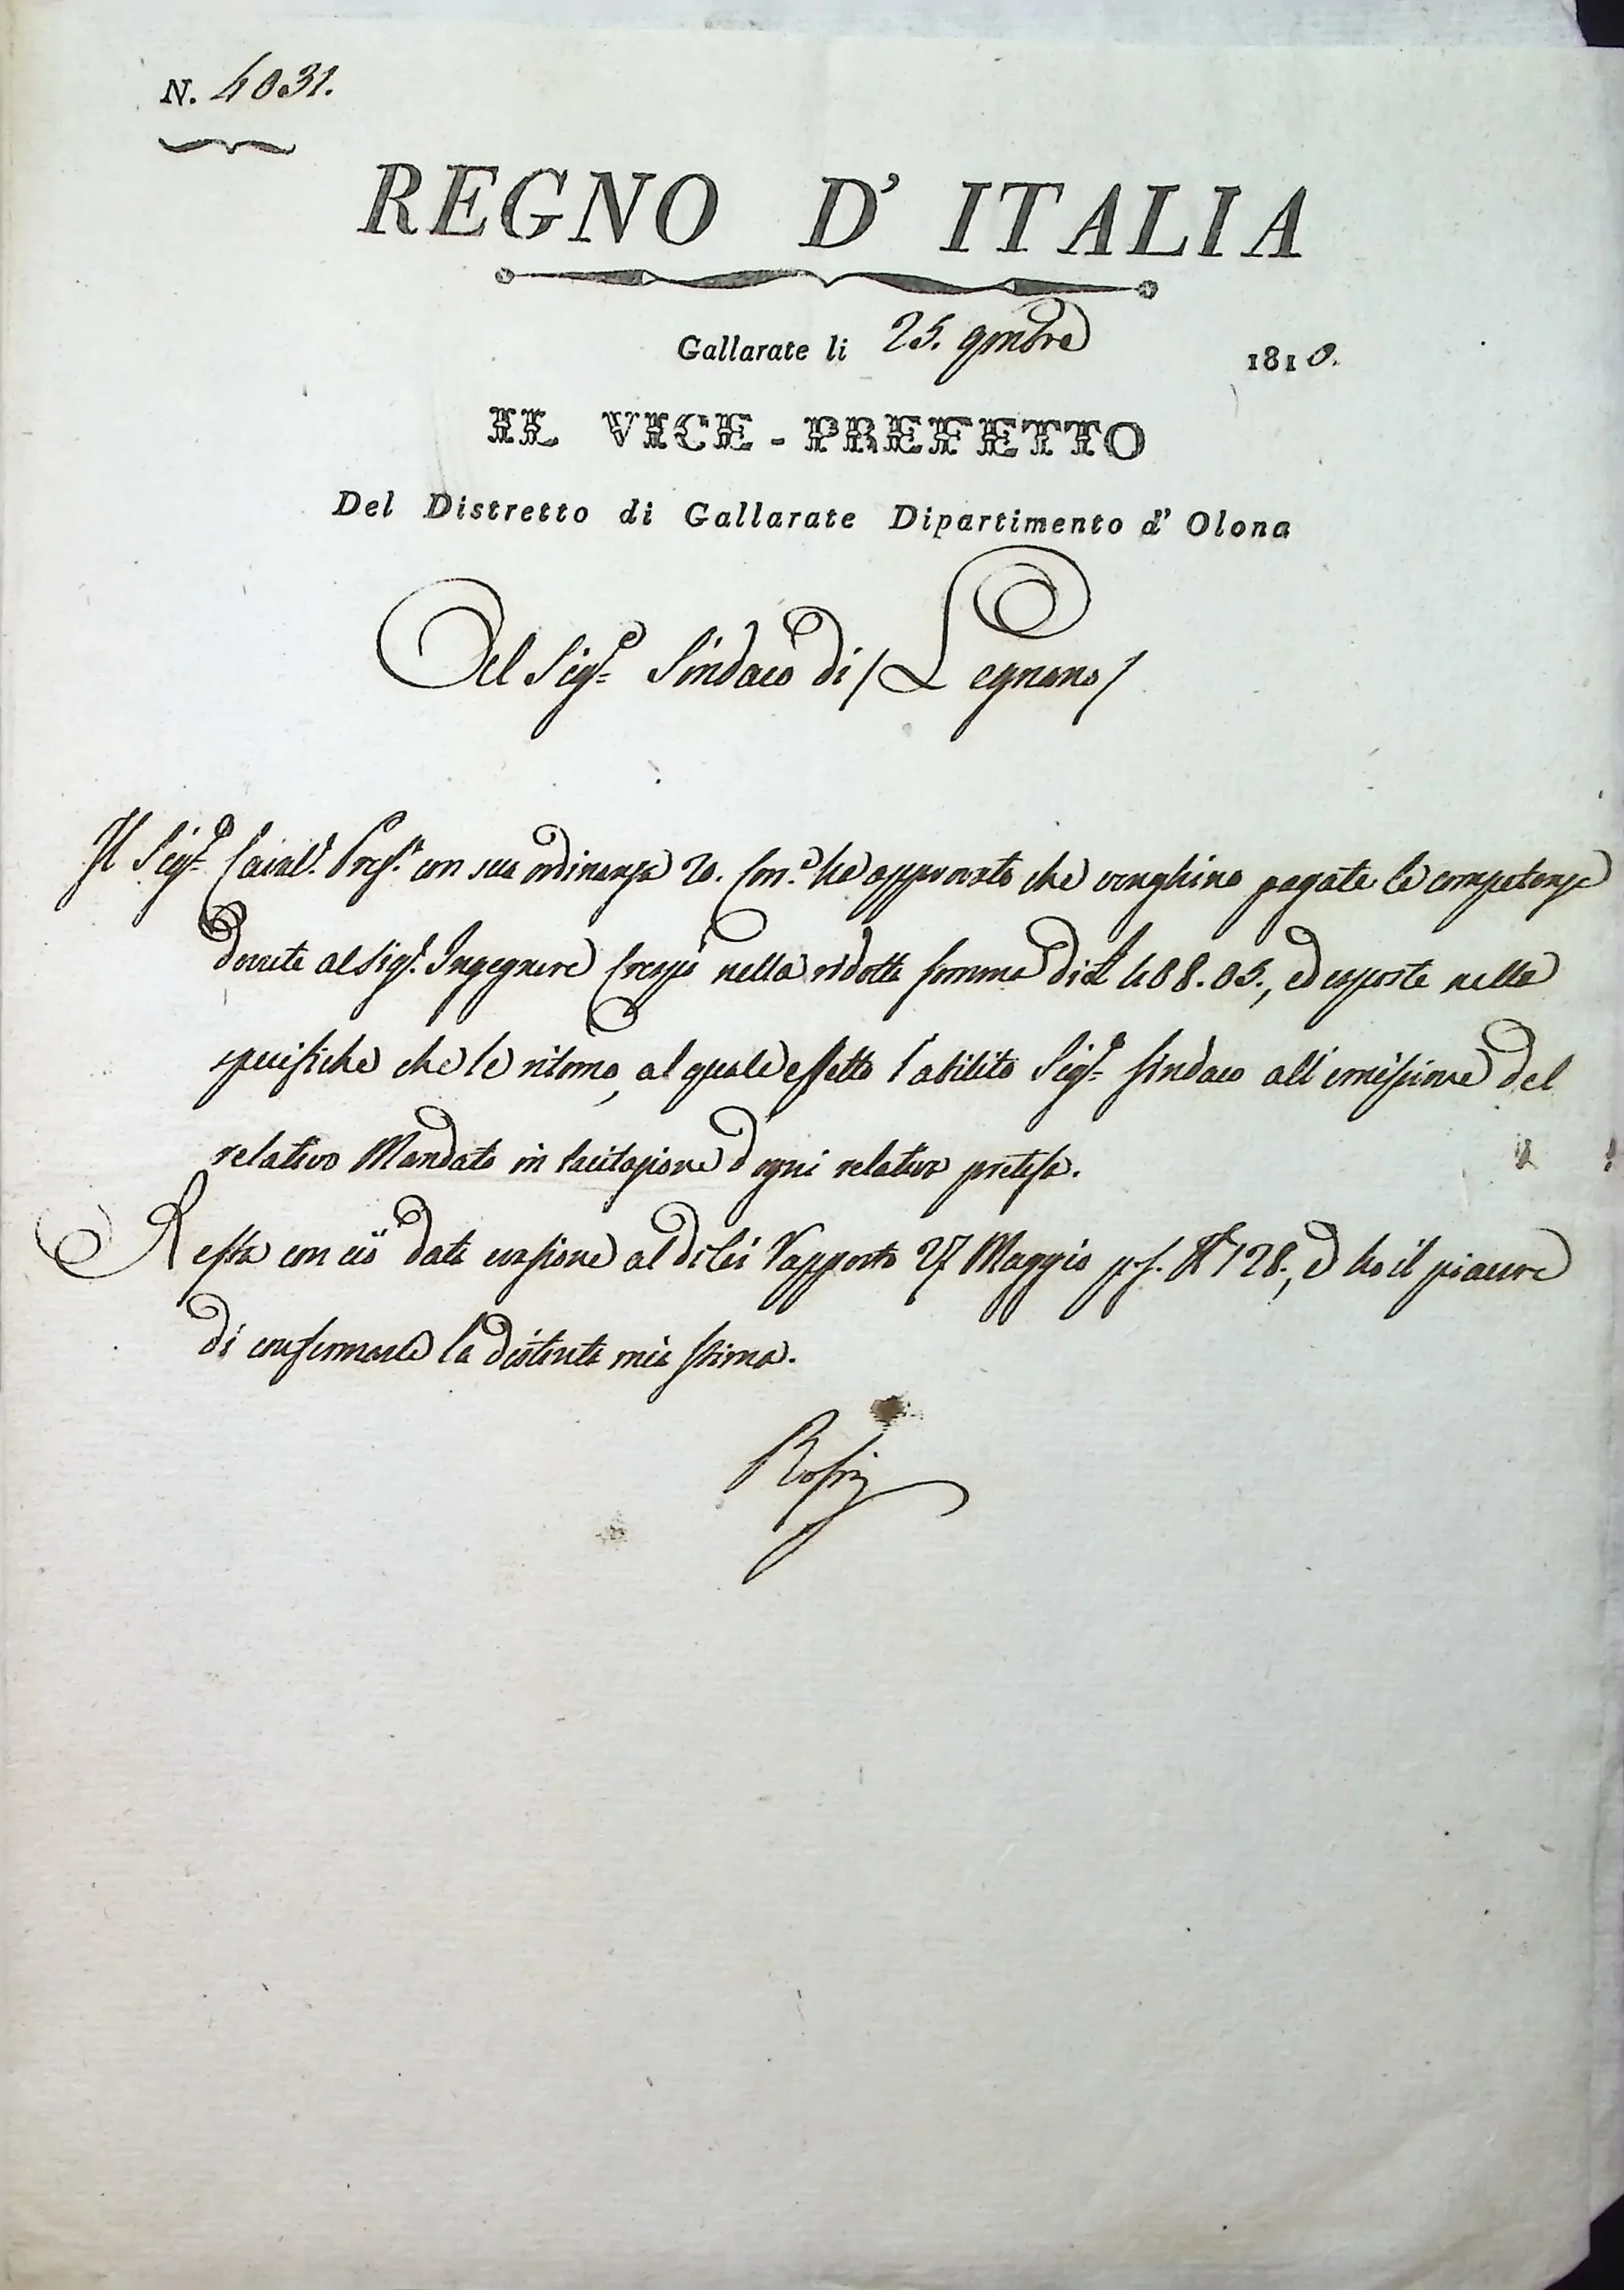 N. 4031.
REGNO D' ITALIA
Gallarate li 25. 9mbre 1810.
IL VICE-PREFETTO
Del Distretto di Gallarate Dipartimento d' Olona
Al Sigr. Sindaco di Legnano
Il Sigr. Caval.r Pref.o con sua ordinanza 20. Corr.e ha approvato che venghino pagate le competenze
dovute al Sigr. Ingegnere Crespi nella ridotta somma di L 408.05., ed esposte nelle
specifiche che le ritorno, al quale effetto l'abilito Sigr. Sindaco all'emissione del
relativo Mandato in tacitazione d'ogni relativa pretesa.
Resta con ciò data evasione al di lei Rapporto 27 Maggio p.p. N. 128., ed ho il piacere
di confermarle la distinta mia stima.